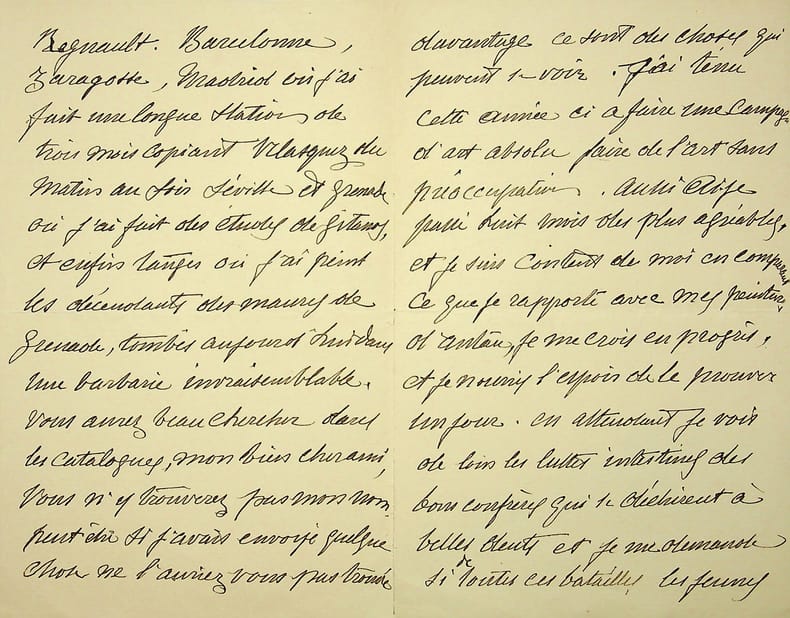 Regnault. Barcelonne,
Zaragosse, Madrid où j'ai
fait une longue station de
trois mois copiant Velasquez du
matin au soir Séville et Grenade
où j'ai fait des études de gitanes,
et enfin Tanger où j'ai peint
les décendants des maures de
Grenade, tombés aujourd'hui dans
une barbarie invraisemblable.
Vous aurez beau chercher dans
les catalogues, mon bien cher ami,
Vous n'y trouverez pas mon nom,
peut être si j'avais envoyé quelque
chose ne l'auriez vous pas trouvé
davantage ce sont des choses qui
peuvent se voir. J'ai tenu
cette année ci a faire une campagne
d'art absolu faire de l'art sans
préoccupation. Aussi ai-je
passé huit mois des plus agréables,
et je suis content de moi en comparant
ce que je rapporte avec mes peintures
d'antan, je me crois en progrès,
et je nourris l'espoir de le prouver
un jour. en attendant je vois
de loin les luttes intestines des
bons confrères qui se déchirent à
belles dents et je me demande
si de toutes ces batailles, les jeunes